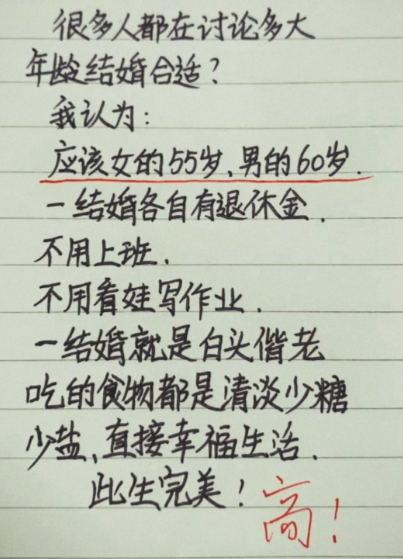 很多人都在讨论多大
年龄结婚合适?
我认为:
应该女的55岁、男的60岁.
一结婚各自有退休金.
不用上班.
不用看娃写作业.
一结婚就是白头偕老
吃的食物都是清淡少糖
少盐、直接幸福生活.
此生完美!
高!